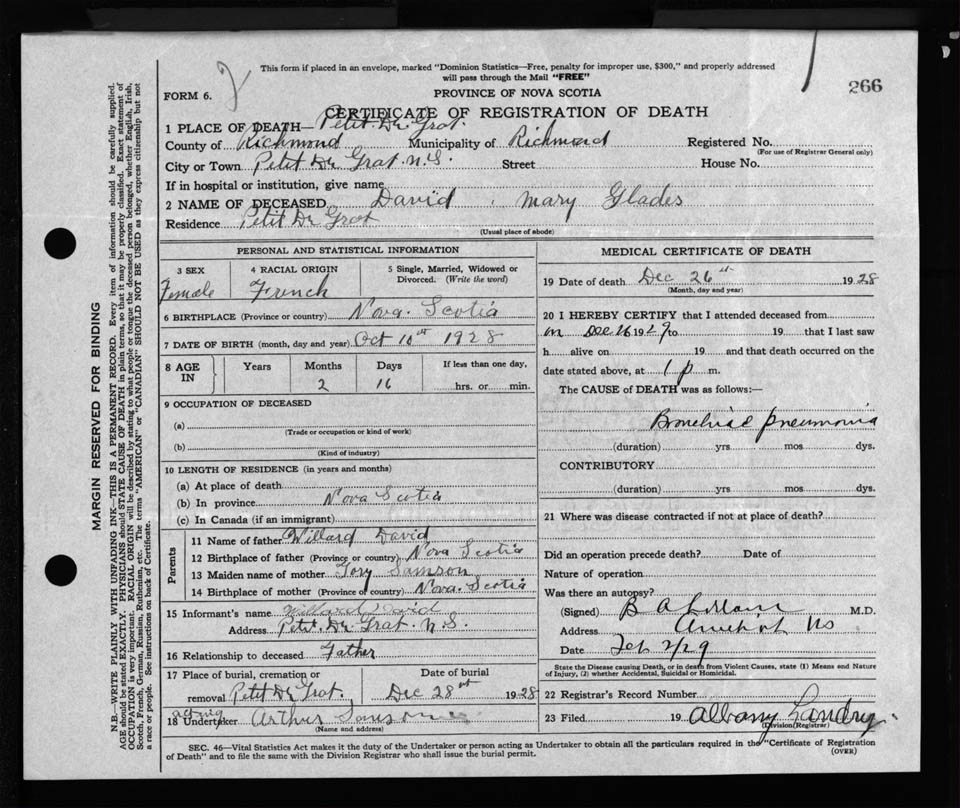 This form if placed in an envelope, marked "Dominion Statistics—Free, penalty for improper use, $300," and properly addressed
will pass through the Mail "FREE"
266
FORM 6.
PROVINCE OF NOVA SCOTIA
CERTIFICATE OF REGISTRATION OF DEATH
1 PLACE OF DEATH— Petit De Grat.
County of Richmond Municipality of Richmond Registered No.
(For use of Registrar General only)
City or Town Petit De Grat. N.S. Street House No.
If in hospital or institution, give name
2 NAME OF DECEASED David, Mary Glades
Residence Petit De Grat
(Usual place of abode)
PERSONAL AND STATISTICAL INFORMATION
3 SEX 4 RACIAL ORIGIN 5 Single, Married, Widowed or
Divorced. (Write the word)
Female French
6 BIRTHPLACE (Province or country) Nova. Scotia
7 DATE OF BIRTH (month, day and year) Oct 10st 1928
8 AGE IN Years Months Days If less than one day,
2 16 hrs. or min.
9 OCCUPATION OF DECEASED
(a)
(Trade or occupation or kind of work)
(b)
(Kind of industry)
10 LENGTH OF RESIDENCE (in years and months)
(a) At place of death
(b) In province Nova Scotia
(c) In Canada (if an immigrant)
Parents
11 Name of father Willard David
12 Birthplace of father (Province or country) Nova Scotia
13 Maiden name of mother Samson
14 Birthplace of mother (Province or country) Nova. Scotia
15 Informant's name Willard David
Address Petit. De Grat. N.S.
16 Relationship to deceased Father
17 Place of burial, cremation or Date of burial
removal Petit De Grat. Dec 28st 1928
acting
18 Undertaker Arthur Samson
(Name and address)
MEDICAL CERTIFICATE OF DEATH
19 Date of death Dec 26st 1928
(Month, day and year)
20 I HEREBY CERTIFY that I attended deceased from
on Dec 26 1929 to 19 that I last saw
h alive on 19 and that death occurred on the
date stated above, at 1 p m.
The CAUSE of DEATH was as follows:—
Bronchial pneumonia
(duration) yrs mos dys.
CONTRIBUTORY
(duration) yrs. mos. dys.
21 Where was disease contracted if not at place of death?
Did an operation precede death? Date of
Nature of operation
Was there an autopsy?
(Signed) B A M.D.
Address Arichat NS
Date Feb 2/29
State the Disease causing Death, or in death from Violent Causes, state (1) Means and Nature
of Injury, (2) whether Accidental, Suicidal or Homicidal.
22 Registrar's Record Number
23 Filed 19 Albany Landry
(Division Registrar)
SEC. 46—Vital Statistics Act makes it the duty of the Undertaker or person acting as Undertaker to obtain all the particulars required in the "Certificate of Registration
of Death" and to file the same with the Division Registrar who shall issue the burial permit. (OVER)
MARGIN RESERVED FOR BINDING
N.B.—WRITE PLAINLY WITH UNFADING INK—THIS IS A PERMANENT RECORD. Every item of information should be carefully supplied.
AGE should be stated EXACTLY. PHYSICIANS should STATE CAUSE OF DEATH in plain terms, so that it may be properly classified. Exact statement of
OCCUPATION is very important. RACIAL ORIGIN will be described by stating to what people or tongue the deceased person belonged, whether English, Irish,
Scotch, French, German, Russian, Ruthenian, etc. The terms "AMERICAN" or "CANADIAN" SHOULD NOT BE USED as they express citizenship but not
a race or people. See instructions on back of Certificate.